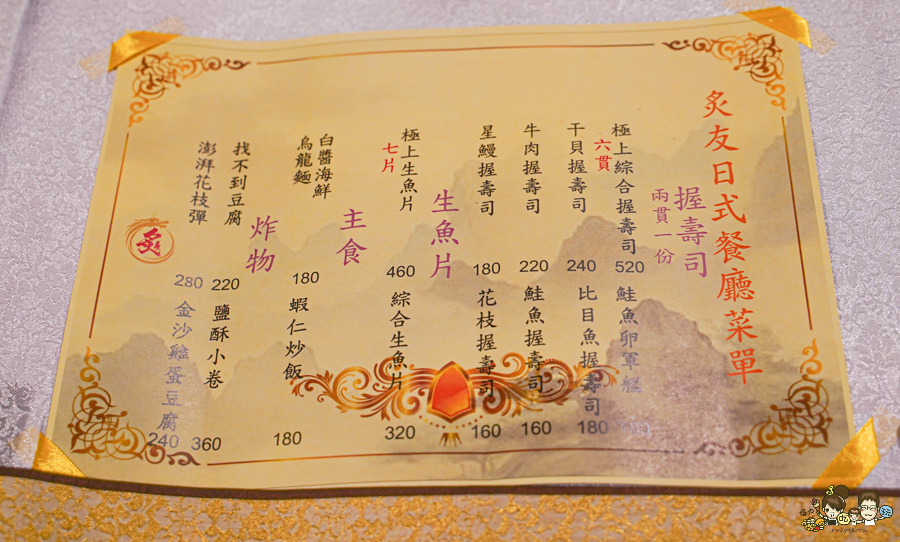 炙友日式餐廳菜單
握壽司
兩貫一份
極上綜合握壽司
六貫
520
鮭魚卵軍艦
干貝握壽司
240
比目魚握壽司
180
牛肉握壽司
220
鮭魚握壽司
160
星鰻握壽司
180
花枝握壽司
160
生魚片
極上生魚片
七片
460
綜合生魚片
320
主食
白醬海鮮
烏龍麵
180
蝦仁炒飯
180
炸物
找不到豆腐
220
鹽酥小卷
360
澎湃花枝彈
280
金沙雞蛋豆腐
240
炙